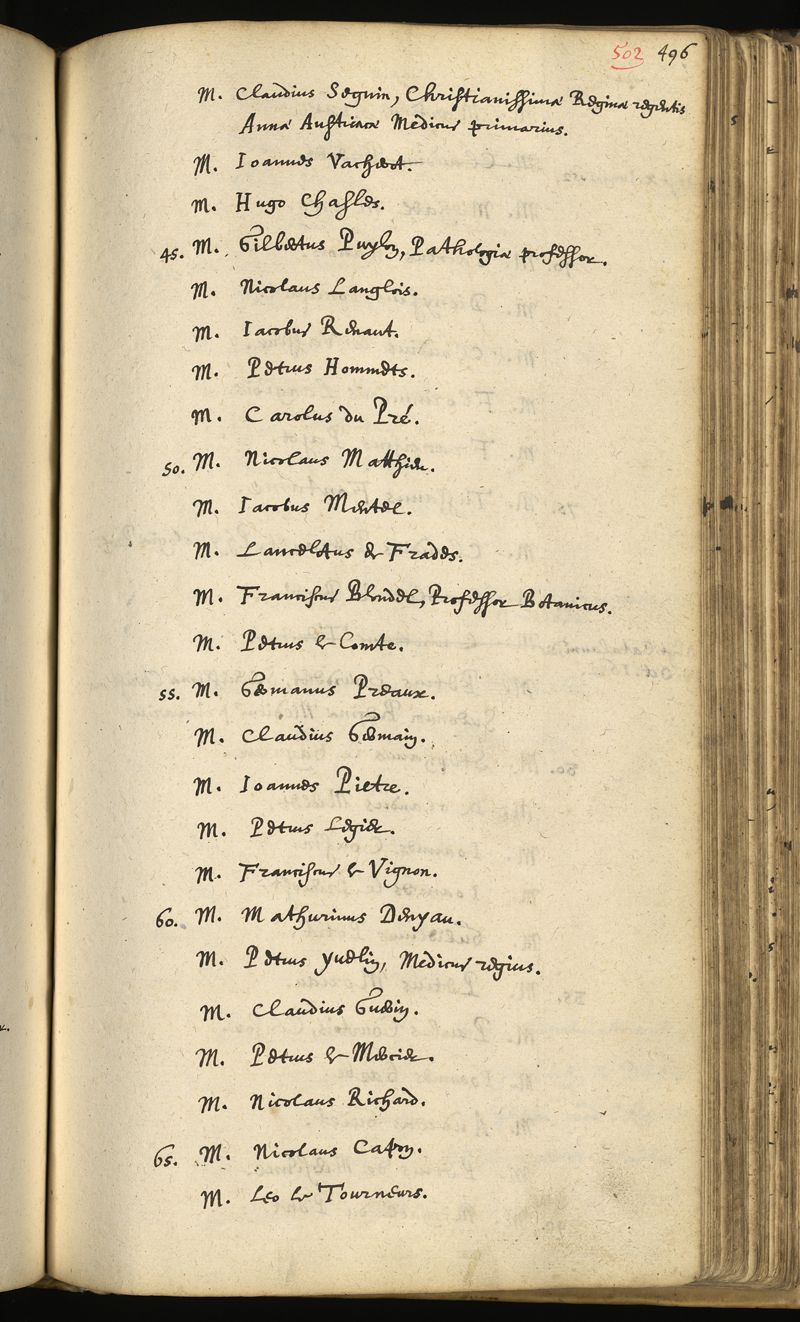 502 496
M. Claudius Seguin, Christianissimæ Reginæ regentis
Annæ Austriacæ Medicus primarius.
M. Ioannes Vachert.
M. Hugo Chasles.
45. M. Gilbertus Puylon, Pathologiæ professor.
M. Nicolaus Langlois.
M. Iacobus Renaut.
M. Petrus Hommets.
M. Carolus du Pré.
50. M. Nicolaus Matthieu.
M. Iacobus Mentel.
M. Lancelotus de Frades.
M. Franciscus Blondel, Professor Botanicus.
M. Petrus le Comte.
55. M. Germanus Preaux.
M. Claudius Germain.
M. Ioannes Pietre.
M. Petrus Legier.
M. Franciscus le Vignon.
60. M. Mathurinus Denyau.
M. Petrus Yuelin, Medicus regius.
M. Claudius Guerin.
M. Petrus le Mercier.
M. Nicolaus Richard.
65. M. Nicolaus Capon.
M. Leo le Tourneurs.